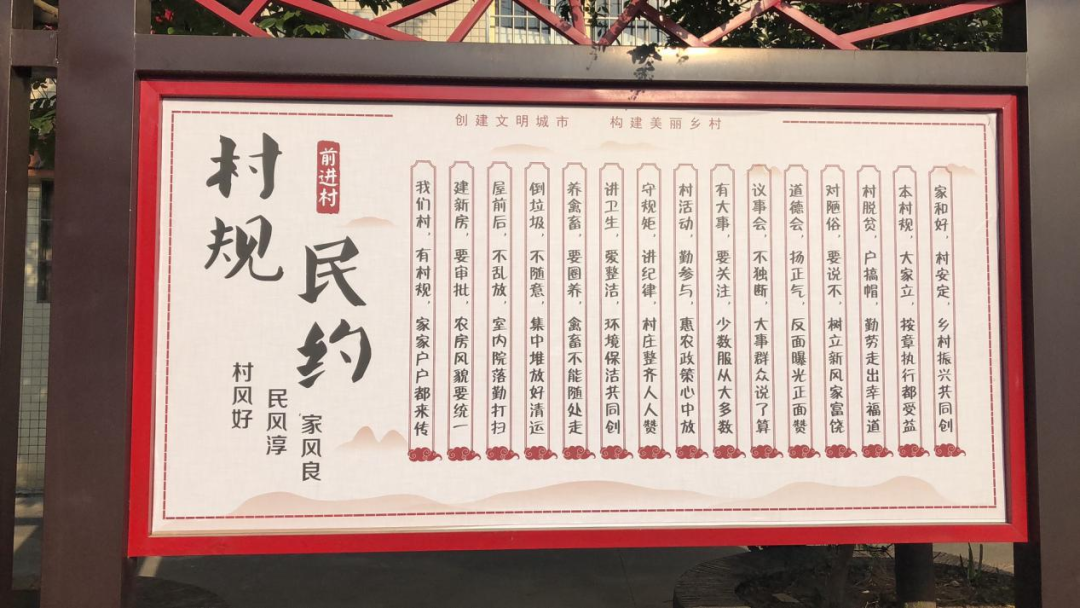 创建文明城市 构建美丽乡村
村规
前进村
民约
村风好
民风淳
家风良
我们村，有村规，家家户户都来传
建新房，要审批，农房风貌要统一
屋前后，不乱放，室内院落勤打扫
倒垃圾，不随意，集中堆放好清运
养禽畜，要圈养，禽畜不能随处走
讲卫生，爱整洁，环境保洁共同创
守规矩，讲纪律，村庄整齐人人赞
村活动，勤参与，惠农政策心中放
有大事，要关注，少数服从大多数
议事会，不独断，大事群众说了算
道德会，扬正气，反面曝光正面赞
对陋俗，要说不，树立新风家富饶
村脱贫，户搞帽，勤劳走出幸福道
本村规，大家立，按章执行都受益
家和好，村安定，乡村振兴共同创